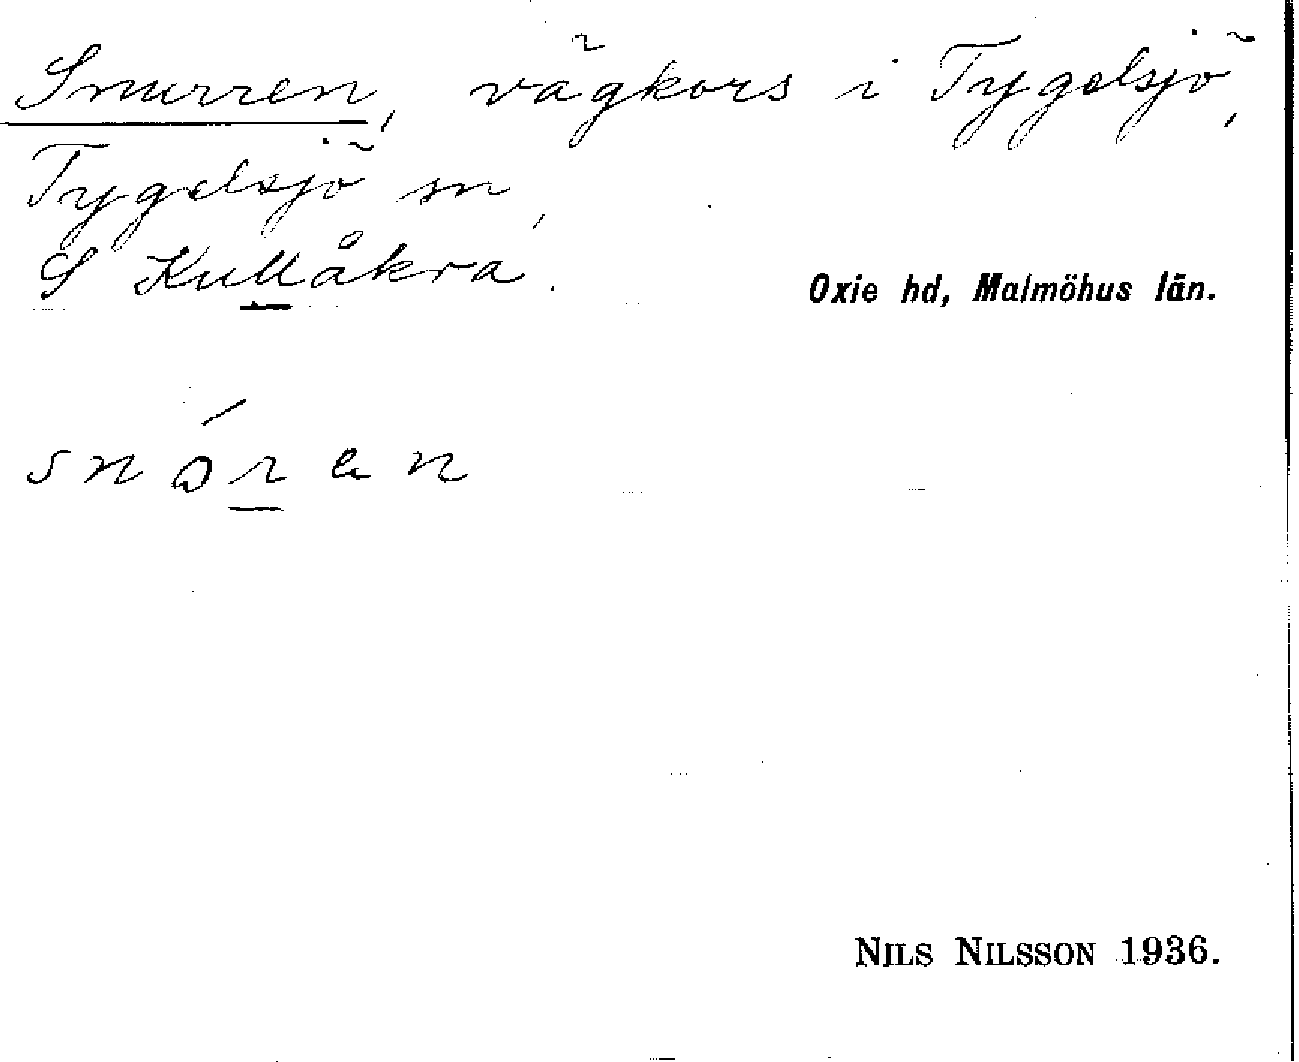 Snurren, vägkors i Tygelsjö,
Tygelsjö sn,
S Kullåkra.
Oxie hd, Malmöhus län.
NILS NILSSON 1936.